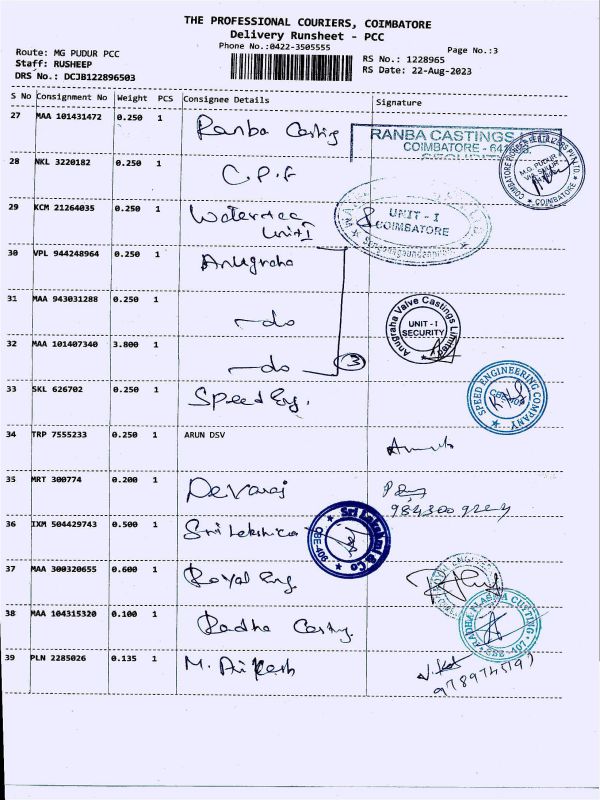 THE PROFESSIONAL COURIERS, COIMBATORE
Delivery Runsheet - PCC
Phone No.:0422-3505555
Page No.:3
Route: MG PUDUR PCC
RS No.: 1228965
Staff: RUSHEEP
RS Date: 22-Aug-2023
DRS No.: DCJB122896503
S No Consignment No Weight PCS Consignee Details Signature
27 MAA 101431472 0.250 1 Ranba Casting
RANBA CASTINGS
COIMBATORE
28 NKL 3220182 0.250 1 C.P.F
M.G. PUDUR
COIMBATORE
29 KCM 21264035 0.250 1
Unit I
UNIT - I
COIMBATORE
30 VPL 944248964 0.250 1 Anugraha
31 MAA 943031288 0.250 1 -do
Anugraha Valve Castings Limited
UNIT - I
SECURITY
32 MAA 101407340 3.800 1 -do 3
33 SKL 626702 0.250 1 Speed Eng.
SPEED ENGINEERING COMPANY
34 TRP 7555233 0.250 1 ARUN DSV
35 MRT 300774 0.200 1 Devaraj
36 IXM 504429743 0.500 1
Sri Lakshmi & Co
CBE-406
37 MAA 300320655 0.600 1 Royal Eng
38 MAA 104315320 0.100 1 Radha Casting
39 PLN 2285026 0.135 1